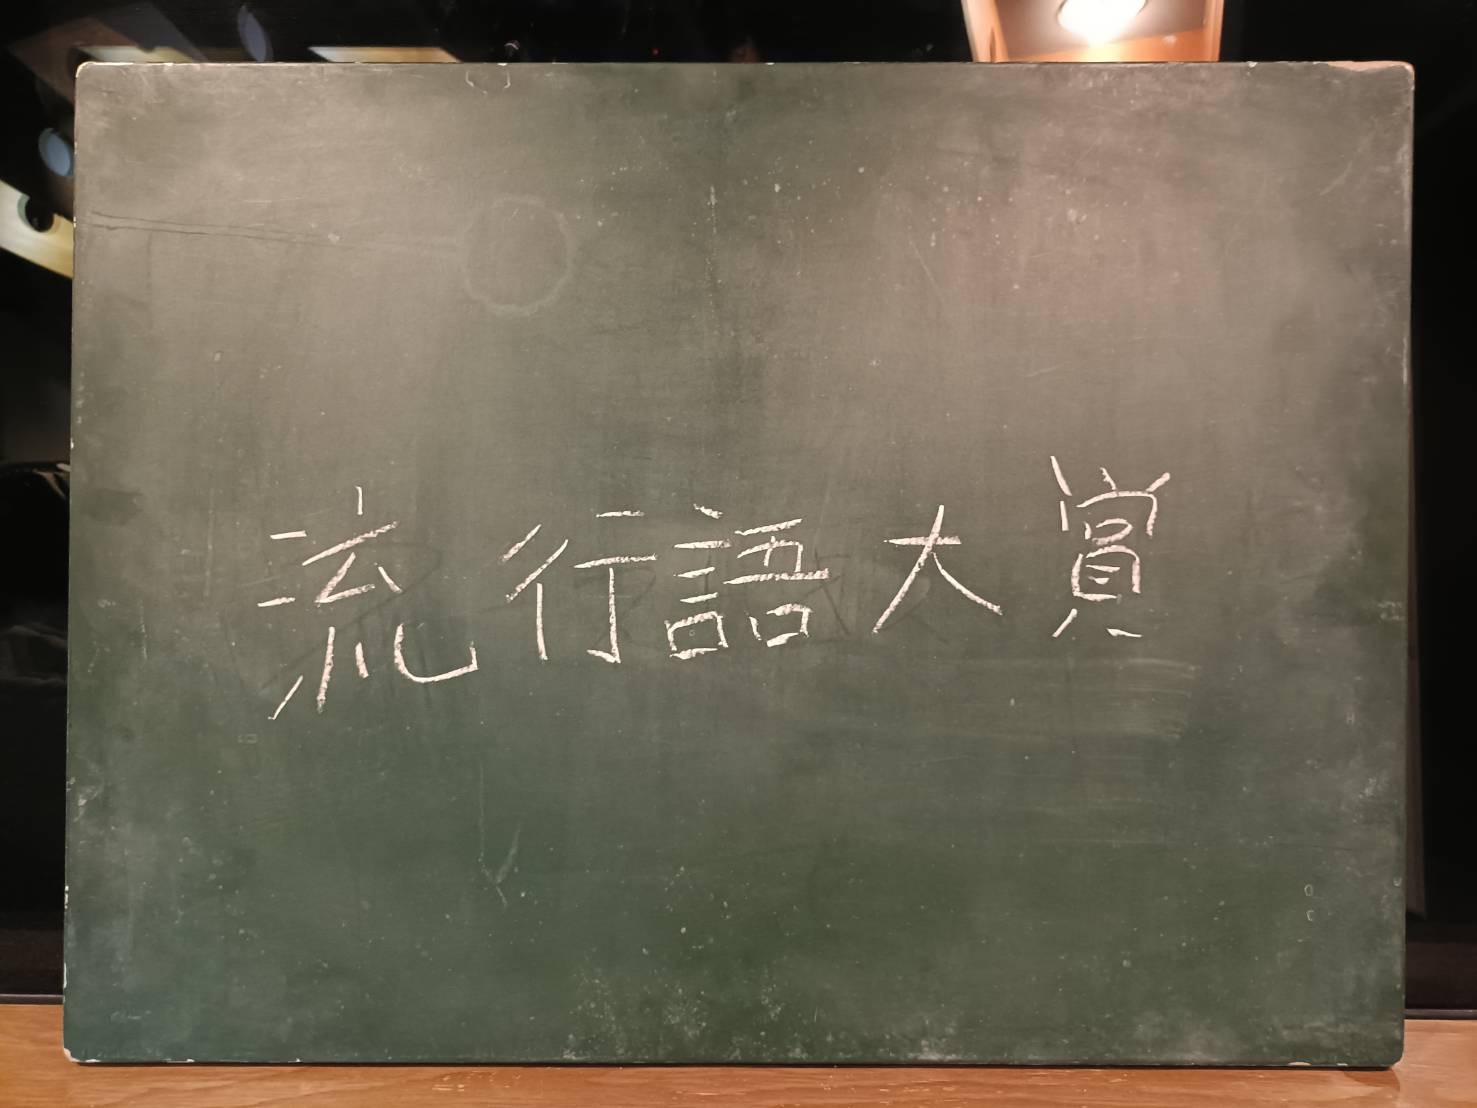 流行語大賞